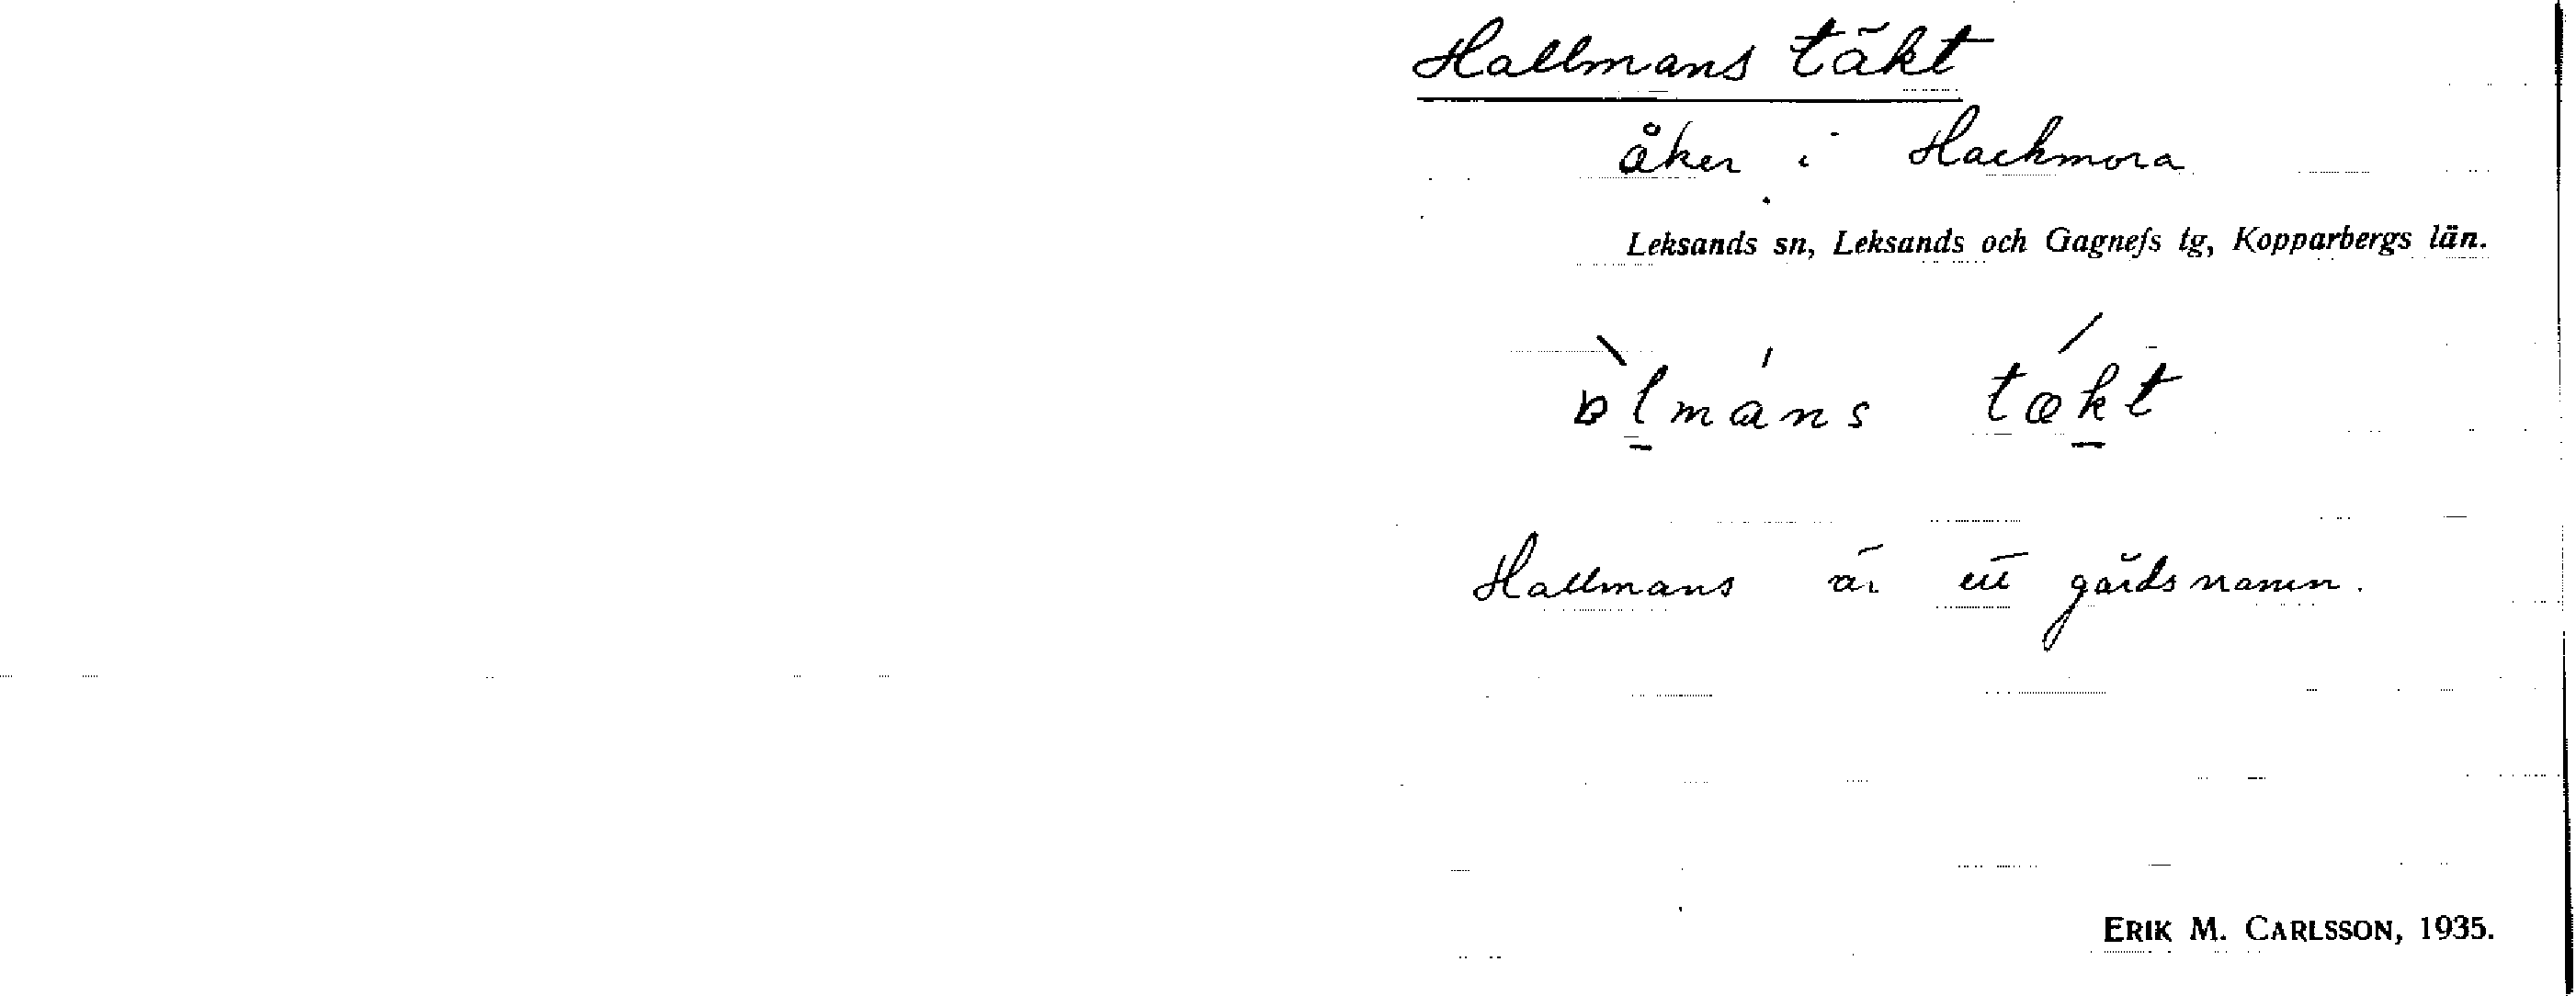 Hallmans täkt
åker i Hackmora
Leksands sn, Leksands och Gagnefs tg, Kopparbergs län.
Hallmans är ett gårdsnamn.
ERIK M. CARLSSON, 1935.